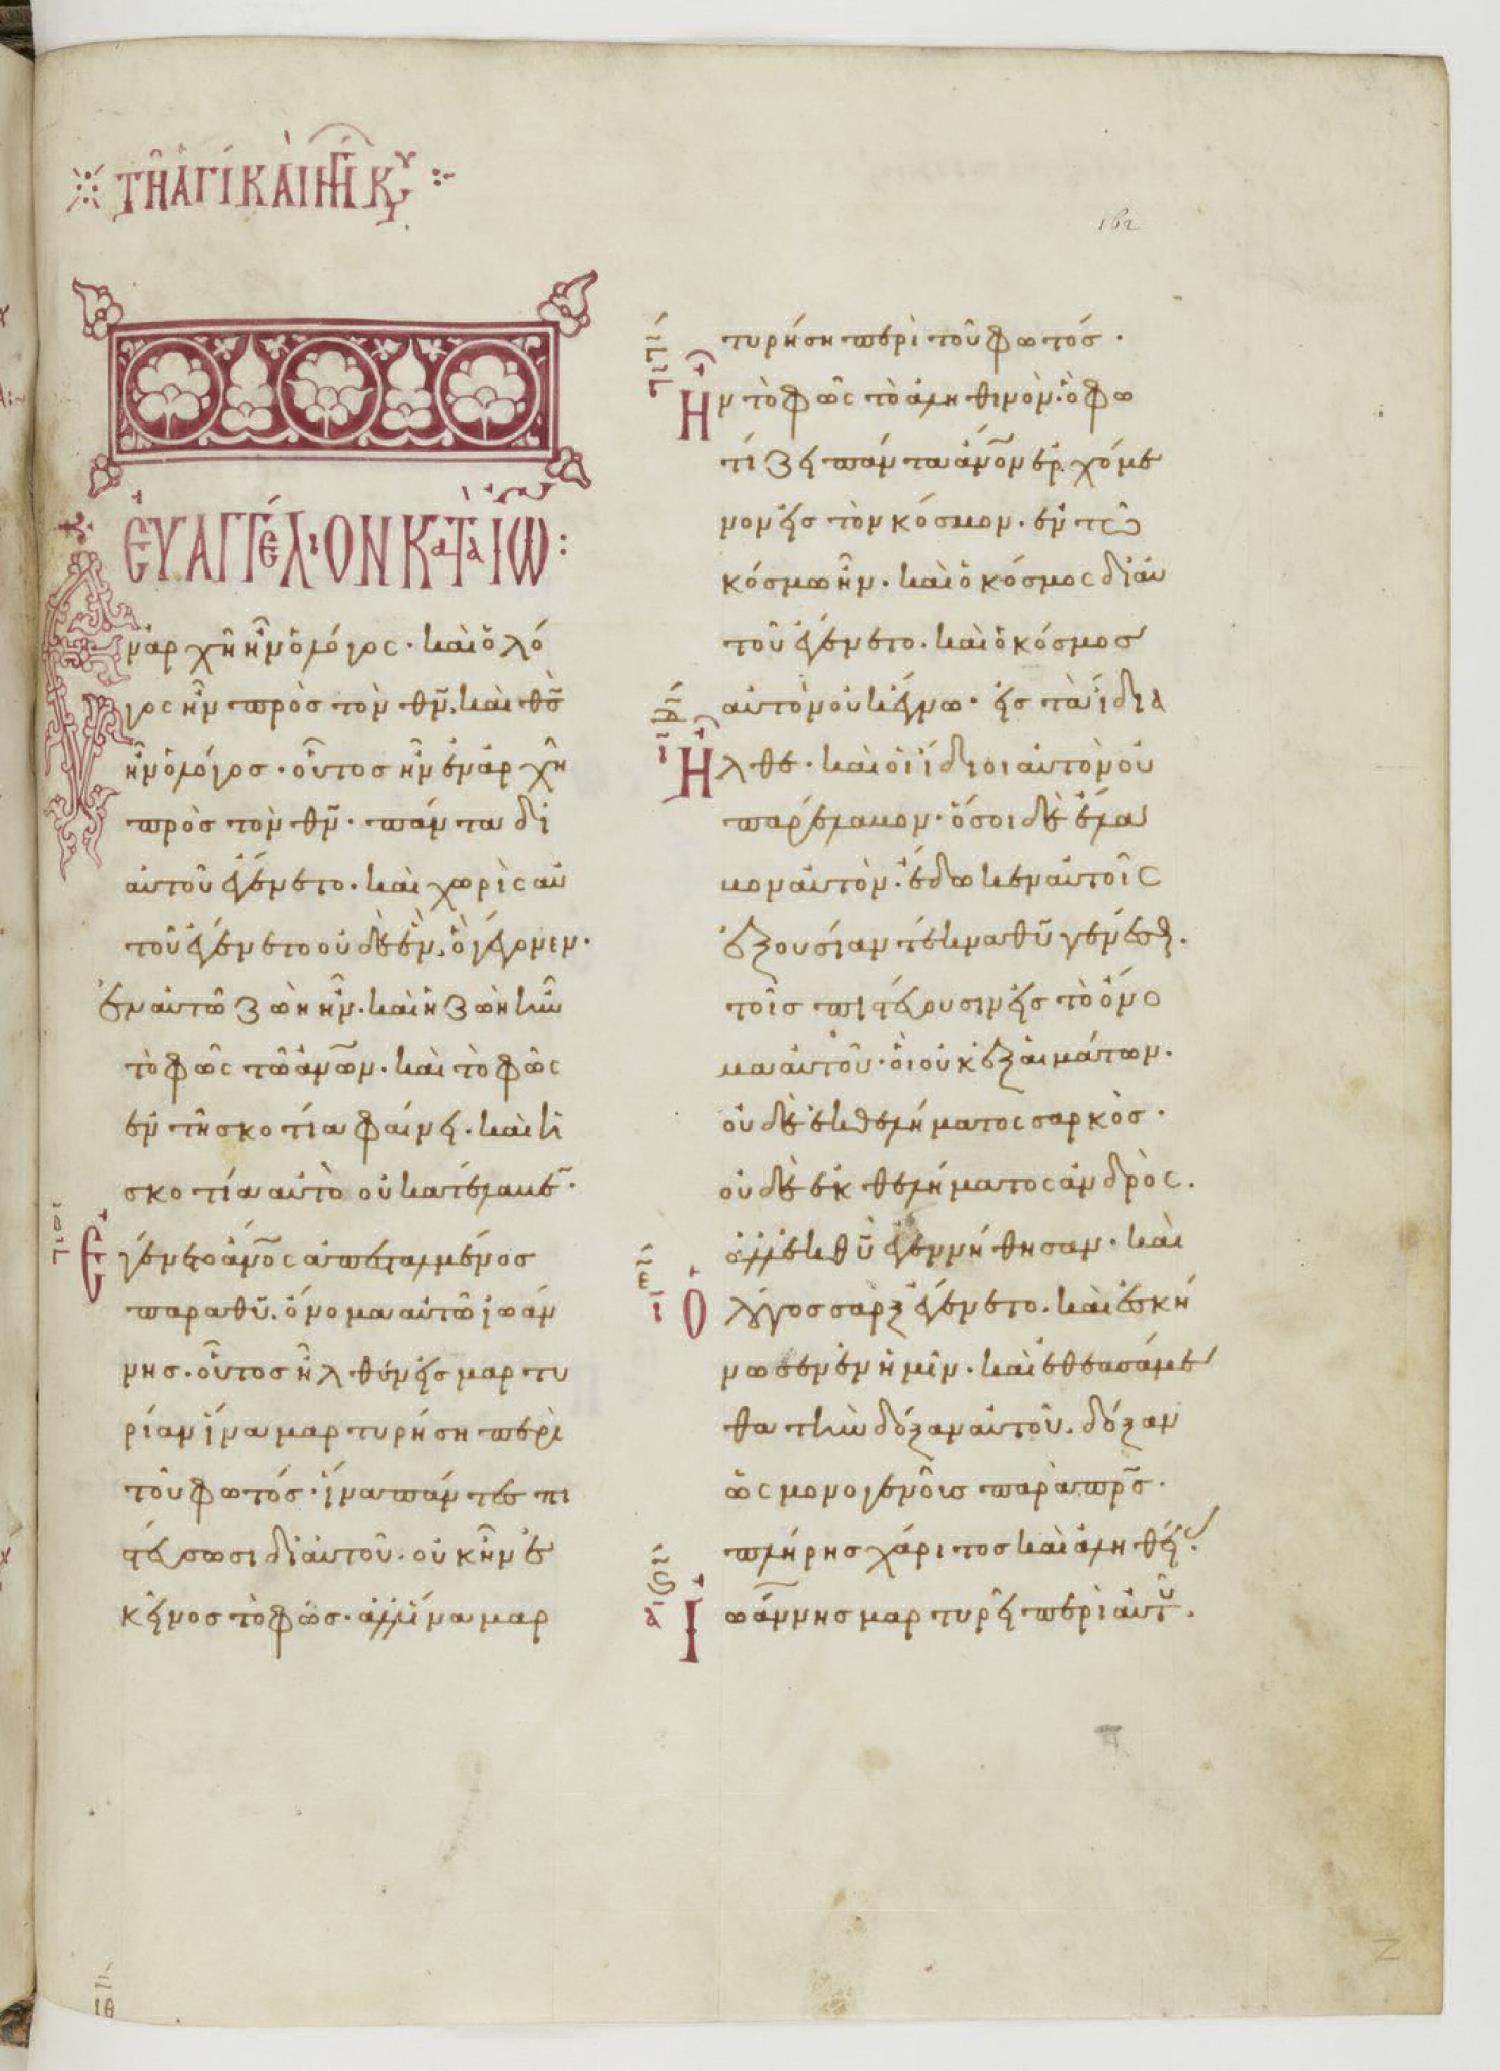 τῆ ἁγί καὶ μγ κυ :-
162
ΕΥΑΓΓΕΛΙΟΝ ΚΑΤΑ ΙΩ:
Ἐν ἀρχῆ ἦν ὁ λόγος· καὶ ὁ λό
γος ἦν πρὸς τὸν θν, καὶ θς
ἦν ὁ λόγος· οὗτος ἦν ἐν ἀρχῆ
πρὸς τὸν θν· πάντα δι
αὐτοῦ ἐγένετο. καὶ χωρὶς αὐ
τοῦ ἐγένετο οὐδὲ ἕν, ὃ γέγονεν·
ἐν αὐτῶ ζωὴ ἦν. καὶ ἡ ζωὴ ἦν
τὸ φῶς τῶ ἀνων. καὶ τὸ φῶς
ἐν τῆ σκοτία φαίνει. καὶ ἡ
σκοτία αὐτὸ οὐ κατέλαβε·
Ἐγένετο ἀνος ἀπεσταλμένος
παρα θυ. ὄνομα αὐτῶ ἰωάν
νης. οὗτος ἦλθεν εἰς μαρτυ
ρίαν ἵνα μαρτυρήση περὶ
τοῦ φωτός· ἵνα πάντες πι
στεύσωσι δι αὐτοῦ. οὐκ ἦν ἐ
κεῖνος τὸ φῶς· ἀλλ ἵνα μαρ
τυρήση περὶ τοῦ φωτός·
Ἦν τὸ φῶς τὸ ἀληθινὸν· ὃ φω
τίζει πάντα ἀνον ἐρχόμε
νον εἰς τὸν κόσμον. ἐν τῶ
κόσμω ἦν. καὶ ὁ κόσμος δι αὐ
τοῦ ἐγένετο. καὶ ὁ κόσμος
αὐτὸν οὐκ ἔγνω. εἰς τὰ ἴδια
Ἦλθε. καὶ οἱ ἴδιοι αὐτὸν οὐ
παρέλαβον· ὅσοι δὲ ἔλα
βον αὐτὸν. ἔδωκεν αὐτοῖς
ἐξουσίαν τέκνα θυ γενέσθαι.
τοῖς πιστεύουσιν εἰς τὸ ὄνο
μα αὐτοῦ· οἳ οὐκ ἐξ αἱμάτων.
οὐδὲ ἐκ θελήματος σαρκὸς·
οὐδὲ ἐκ θελήματος ἀνδρὸς.
ἀλλ ἐκ θυ ἐγεννήθησαν· καὶ
Ὁ λόγος σὰρξ ἐγένετο. καὶ ἐσκή
νωσεν ἐν ἡμῖν. καὶ ἐθεασάμε
θα τὴν δόξαν αὐτοῦ. δόξαν
ὡς μονογενοῦς παρὰ πρς.
πλήρης χάριτος καὶ ἀληθεί·
Ἰωάννης μαρτυρεῖ περὶ αὐτοῦ.
ιθ